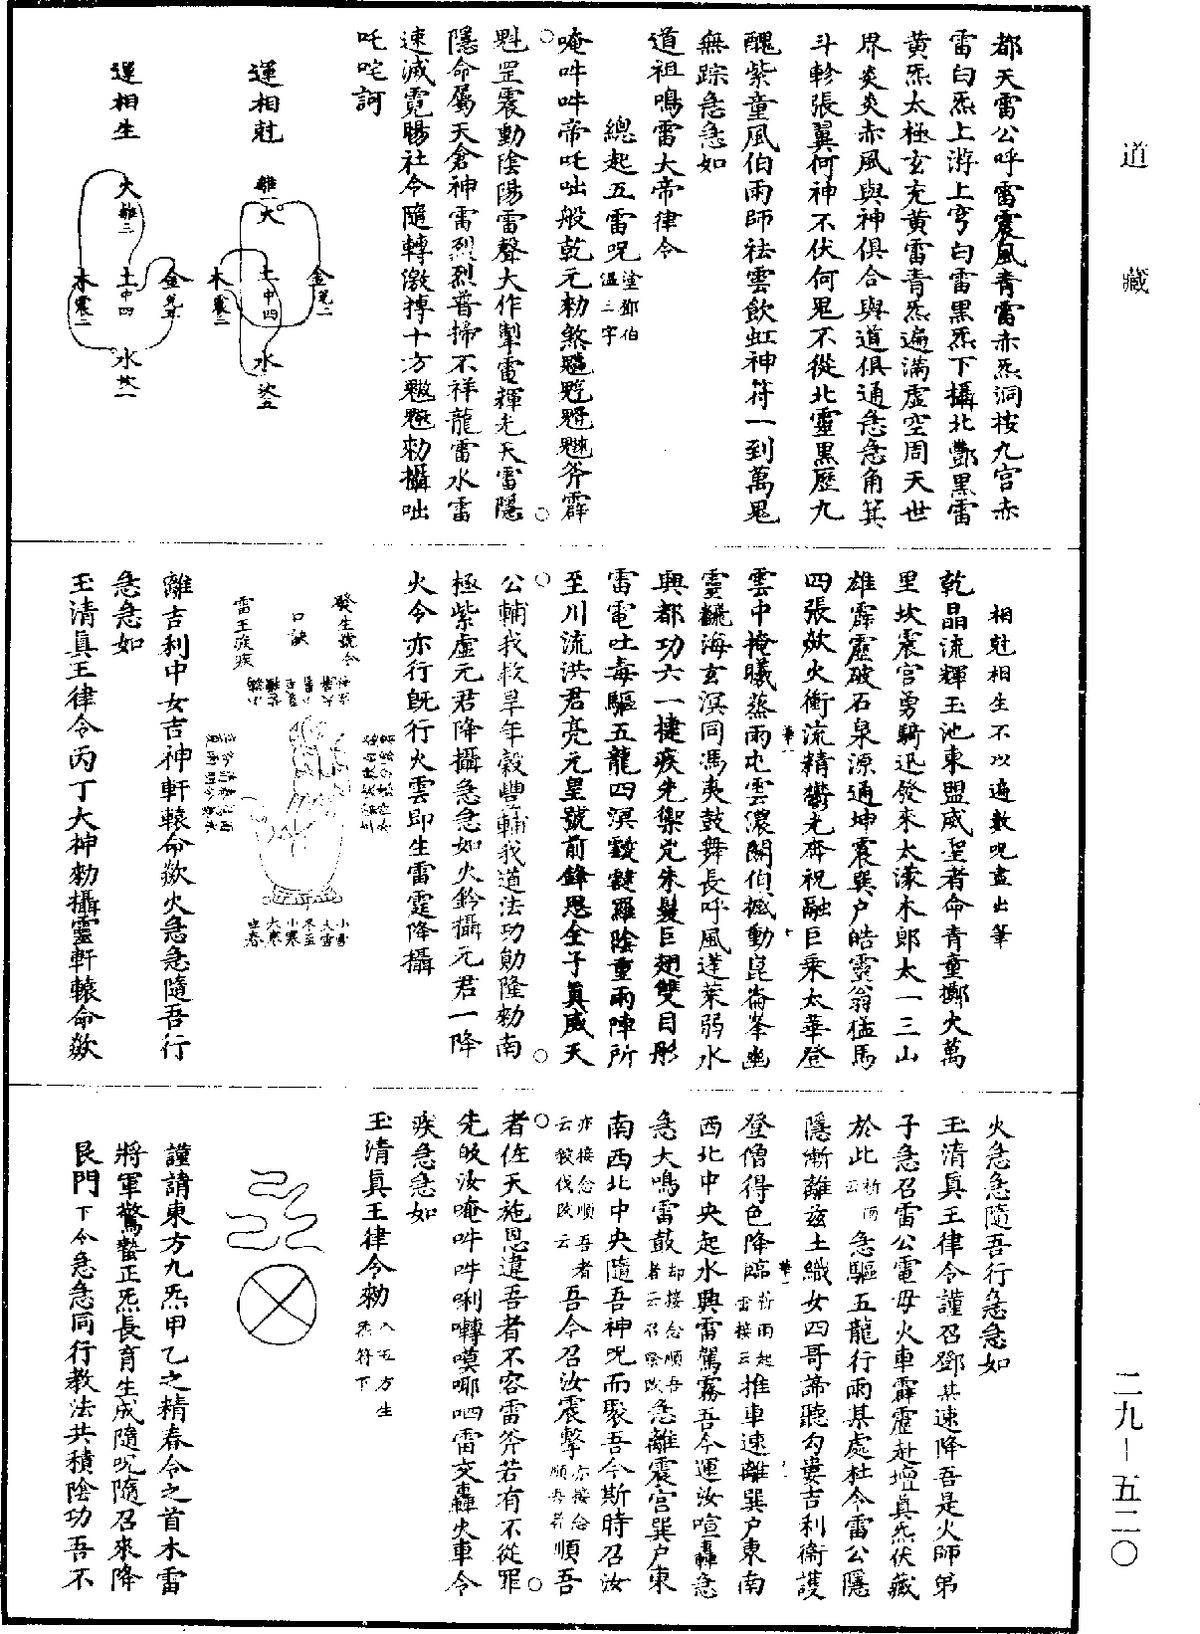 道藏
都天雷公呼雷震風青雷赤炁洞按九宫赤
雷白炁上游上穹白雷黑炁下攝北酆黑雷
黄炁太極玄充黄雷青炁遍滿虛空周天世
界炎炎赤風與神俱合與道俱通急急角箕
斗軫張翼何神不伏何鬼不從北靈黑歷九
醜紫童風伯雨師祛雲飲虹神符一到萬鬼
無踪急急如
道祖鳴雷大帝律令
總起五雷呪
塗鄧伯
溫三字
唵吽吽帝吒咄般乾元勑煞
斧霹
魁罡震動陰陽雷聲大作掣電輝光天雷隱
隱命屬天倉神雷烈烈普掃不祥龍雷水雷
速滅霓暘社令隨轉激搏十方
勑攝咄
吒咤訶
運相尅
離一火
金兊二
土中四
木震三
水坎五
運相生
火離三
金兊五
土中四
木震二
水坎一
相尅相生不以遍數呪畫出筆
乾晶流輝玉池東盟威聖者命青童擲火萬
里坎震宫勇騎迅發來太濛木郎太一三山
雄霹靂破石泉源通坤震巽户皓靈翁猛馬
四張歘火衝流精鬱光奔祝融巨乘太華登
雲中掩曦蒸雨屯雲濃閼伯撼動崑崙峯幽
靈翻海玄溟同馮夷鼓舞長呼風蓬萊弱水
興都功六一捷疾先禦兇朱髮巨翅雙目彤
雷電吐毒驅五龍四溟
羅陰重兩陣所
至川流洪君亮元皇號前鋒思全子真威天
公輔我救旱年榖豊輔我道法功勛隆勑南
極紫虛元君降攝急急如火鈴攝元君一降
火令亦行旣行火雲即生雷霆降攝
發生號令
口訣
雷王疾疾
小雪
大雪
冬至
小寒
大寒
立春
離吉利中女吉神軒轅命歘火急急隨吾行
急急如
玉清真王律令丙丁大神勑攝靈軒轅命歘
火急急隨吾行急急如
玉清真王律令謹召鄧某速降吾是火師弟
子急召雷公電母火車霹靂赴壇真炁伏藏
於此祈雨云急驅五龍行雨某處杜令雷公隱
隱漸離兹土織女四哥諦聽勾婁吉利衞護
登僧得色降臨祈雨起雷接云推車速離巽户東南
西北中央起水興雷駕霧吾今運汝喧轟急
急大鳴雷鼓却接念順吾者云召
急離震宫巽户東
南西北中央隨吾神呪而聚吾今斯時召汝
亦接念順吾者
吾今召汝震擊亦接念順吾者順吾
者佐天施恩違吾者不容雷斧若有不從罪
先
汝唵吽吽唎囀嘆唧呬雷交轟火車令
疾急急如
玉清真王律令勑入五方生炁符下
謹請東方九炁甲乙之精春令之首木雷
將軍驚蟄正炁長育生成隨呪隨召來降
艮門下令急急同行教法共積陰功吾不
二九-五二〇